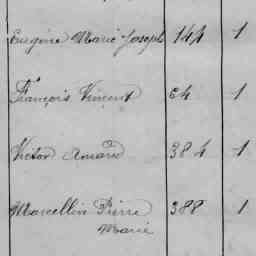 Eugène Marie Joseph 144 1
François Vincent 64 1
Victor Amand 384 1
Marcellin Pierre 388 1
Marie